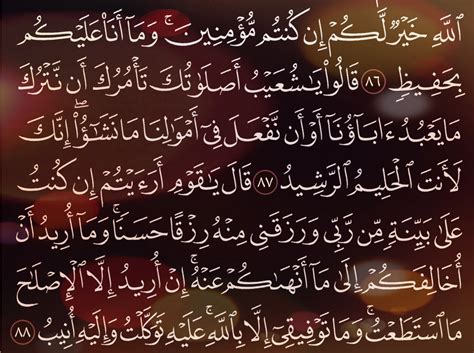 ٱللَّهِ خَيۡرٞ لَّكُمۡ إِن كُنتُم مُّؤۡمِنِينَۚ وَمَآ أَنَا۠ عَلَيۡكُم
بِحَفِيظٖ ٨٦ قَالُواْ يَٰشُعَيۡبُ أَصَلَوٰتُكَ تَأۡمُرُكَ أَن نَّتۡرُكَ
مَا يَعۡبُدُ ءَابَآؤُنَآ أَوۡ أَن نَّفۡعَلَ فِيٓ أَمۡوَٰلِنَا مَا نَشَٰٓؤُاْۖ إِنَّكَ
لَأَنتَ ٱلۡحَلِيمُ ٱلرَّشِيدُ ٨٧ قَالَ يَٰقَوۡمِ أَرَءَيۡتُمۡ إِن كُنتُ
عَلَىٰ بَيِّنَةٖ مِّن رَّبِّي وَرَزَقَنِي مِنۡهُ رِزۡقًا حَسَنٗاۚ وَمَآ أُرِيدُ أَنۡ
أُخَالِفَكُمۡ إِلَىٰ مَآ أَنۡهَىٰكُمۡ عَنۡهُۚ إِنۡ أُرِيدُ إِلَّا ٱلۡإِصۡلَٰحَ
مَا ٱسۡتَطَعۡتُۚ وَمَا تَوۡفِيقِيٓ إِلَّا بِٱللَّهِۚ عَلَيۡهِ تَوَكَّلۡتُ وَإِلَيۡهِ أُنِيبُ ٨٨